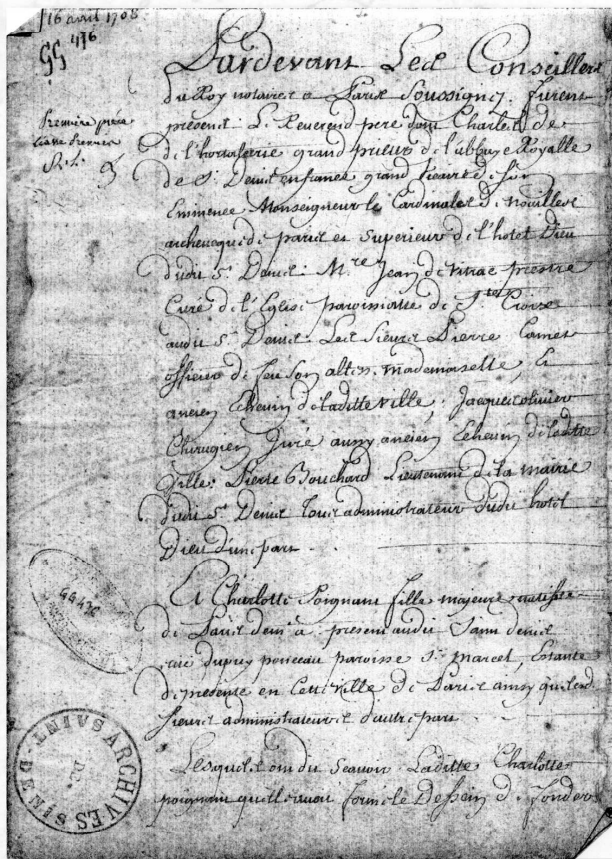 16 avril 1708
GG 476
Première pièce
liasse première
Pardevant Les Conseillers
du Roy notaires a Paris Soussignez. furent
present. Le Reverend pere dom Charles de
de l'hostallerie grand prieur de l'abbaye Royalle
de St. Denis en france grand vicaire de Son
Eminence Monseigneur le Cardinal de Noailles
archeveque de paris et Superieur de l'hotel Dieu
dudit St. Denis. Mre. Jean de prestre
Curé de l'Eglise paroissialle de Ste Croix
audit St. Denis. Les Sieurs Pierre Camet
officier de feu Son altes. mademoiselle, et
ancien Echevin de laditte ville, Jacques olivier
Chirugien Juré aussy ancien Echevin de laditte
Ville. Pierre Bouchard Lieutenant de la mairie
dudit St. Denis Tous administrateurs dudit hotel
Dieu d'une part
Et Charlotte Poignant fille majeure native
de Paris demt. a present audit Saint denis
rue du ponceau paroisse St. marcel, Estante
de presente en Cette ville de Paris ainsy que lesd
Sieurs administrateurs d'autre part
Lesquels ont dit Scavoir Laditte Charlotte
poignant quelle avoit formé le Dessein de fonder
GG 476
ARCHIVES DE SAINT-DENIS